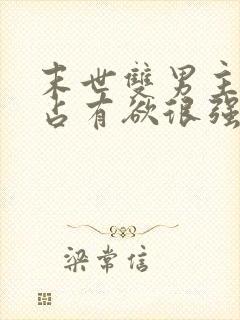 末世雙男主
占有欲很强
梁常信